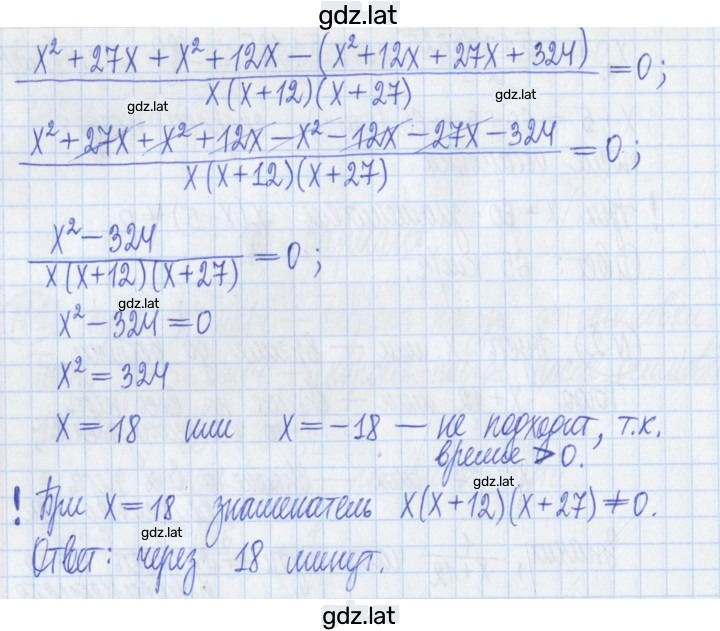 gdz.lat
x² + 27x + x² + 12x − (x² + 12x + 27x + 324)
x(x+12)(x+27) = 0;
gdz.lat gdz.lat
x² + 27x + x² + 12x − x² − 12x − 27x − 324
x(x+12)(x+27) = 0;
x² − 324
x(x+12)(x+27) = 0;
gdz.lat
x² − 324 = 0
x² = 324
x = 18 или x = −18 — не подходит, т.к.
время > 0.
gdz.lat
! При x = 18 знаменатель x(x+12)(x+27) ≠ 0.
gdz.lat
Ответ: через 18 минут.
gdz.lat